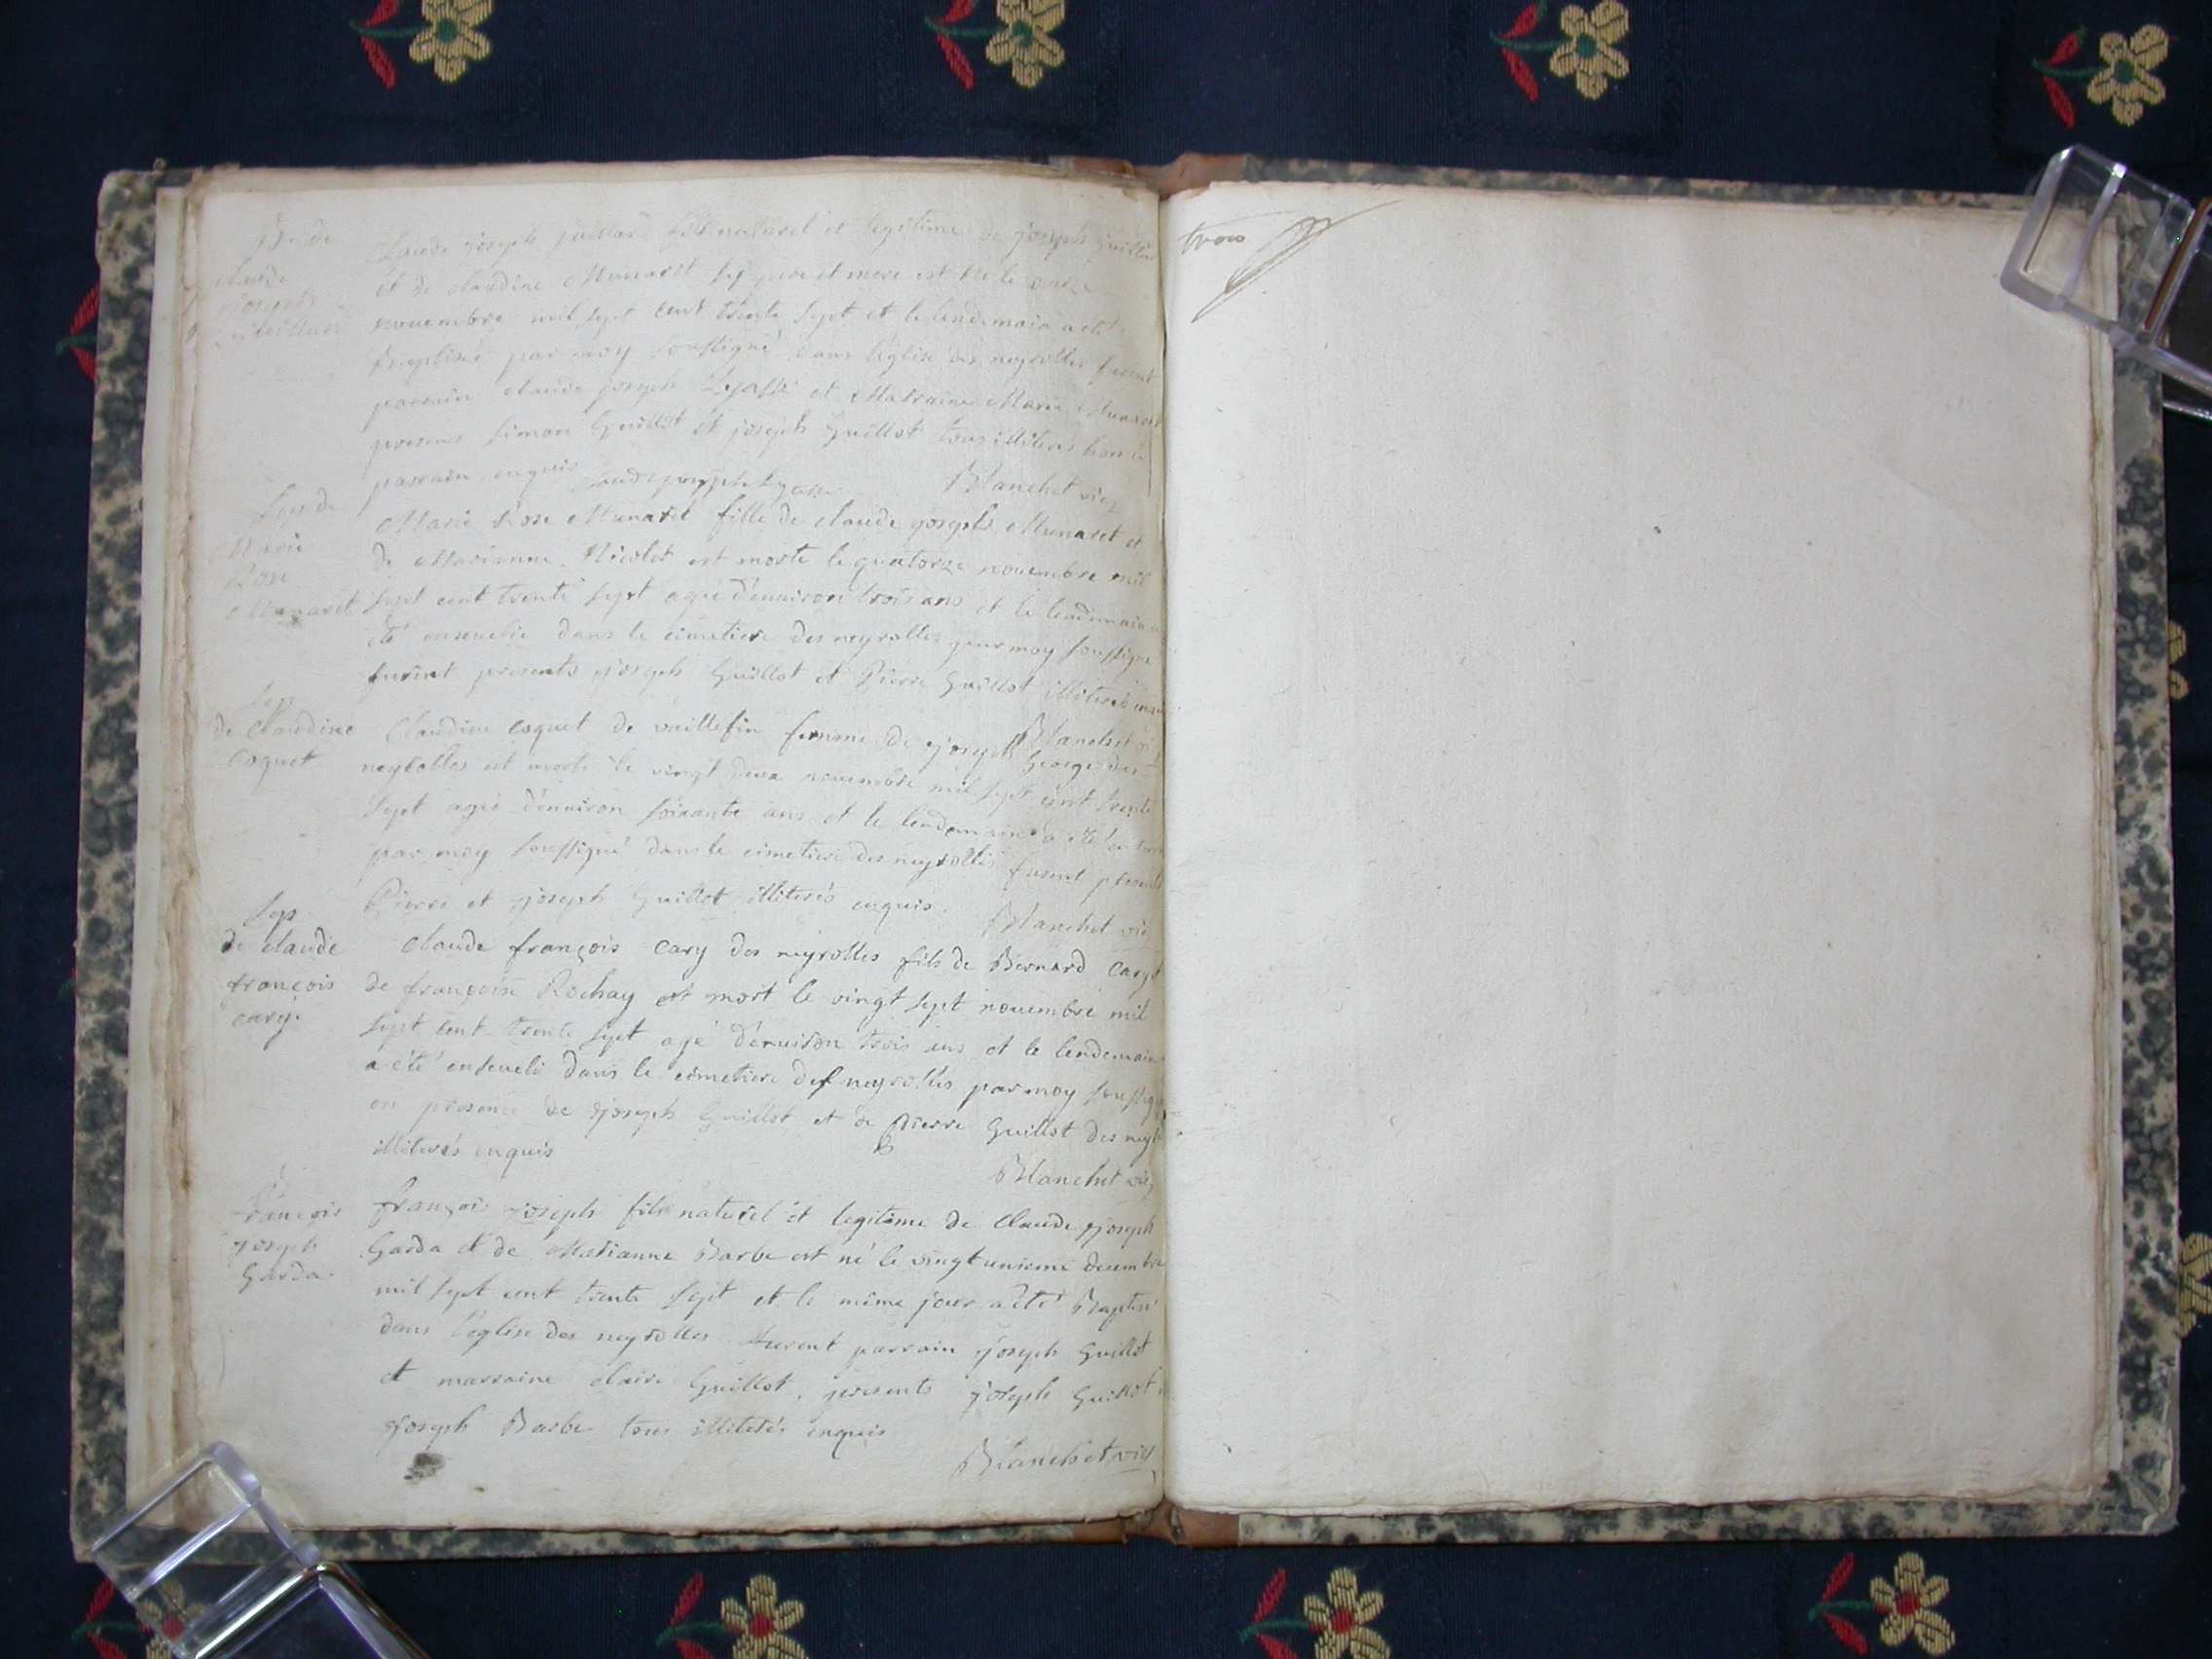 Claude joseph fils naturel et legitime de joseph
et de claudine Munaret ses pere et mere est né le onze
nouembre mil sept cent trente sept et le lendemain a eté
baptisé par moy soussigné dans l'eglise des neyrolles furent
parrain claude joseph et Marraine Marie Munaret
presens simon Guillot et joseph Guillot tous illiterés hors le
parrain enquis claude joseph
Blanchet vic
Sep de
Marie
Rose
Munaret
Marie Rose Munaret fille de claude joseph Munaret et
de Marianne Nicolet est morte le quatorze nouembre mil
sept cent trente sept agée d'enuiron trois ans et le lendemain a
été enseuelie dans le cimetiere des neyrolles par moy soussigné
furent presents joseph Guillot et Pierre Guillot illiterés enquis
Blanchet vic
Sep
de claudine
Coquet
Claudine coquet de femme de joseph George des
neyrolles est morte le vingt deux nouembre mil sept cent trente
sept agée d'enuiron soixante ans et le lendemain a été
par moy soussigné dans le cimetiere des neyrolles furent presents
Pierre et joseph Guillot illiterés enquis.
Blanchet vic
Sep
de claude
françois
cary.
Claude françois cary des neyrolles fils de Bernard cary et
de françoise Rochay est mort le vingt sept nouembre mil
sept cent trente sept agé d'enuiron trois ans et le lendemain
a été enseueli dans le cimetiere des neyrolles par moy soussigné
en presence de joseph Guillot et de Pierre Guillot des
illiterés enquis
Blanchet vic
françois
joseph
Garda
françois joseph fils naturel et legitime de Claude joseph
Garda et de Marianne Barbe est né le vingt unieme decembre
mil sept cent trente sept et le même jour a eté Baptisé
dans l'eglise des neyrolles furent parrain joseph Guillot
et marraine claire Guillot, presents joseph Guillot
joseph Barbe tous illiterés enquis
Blanchet vic
trois